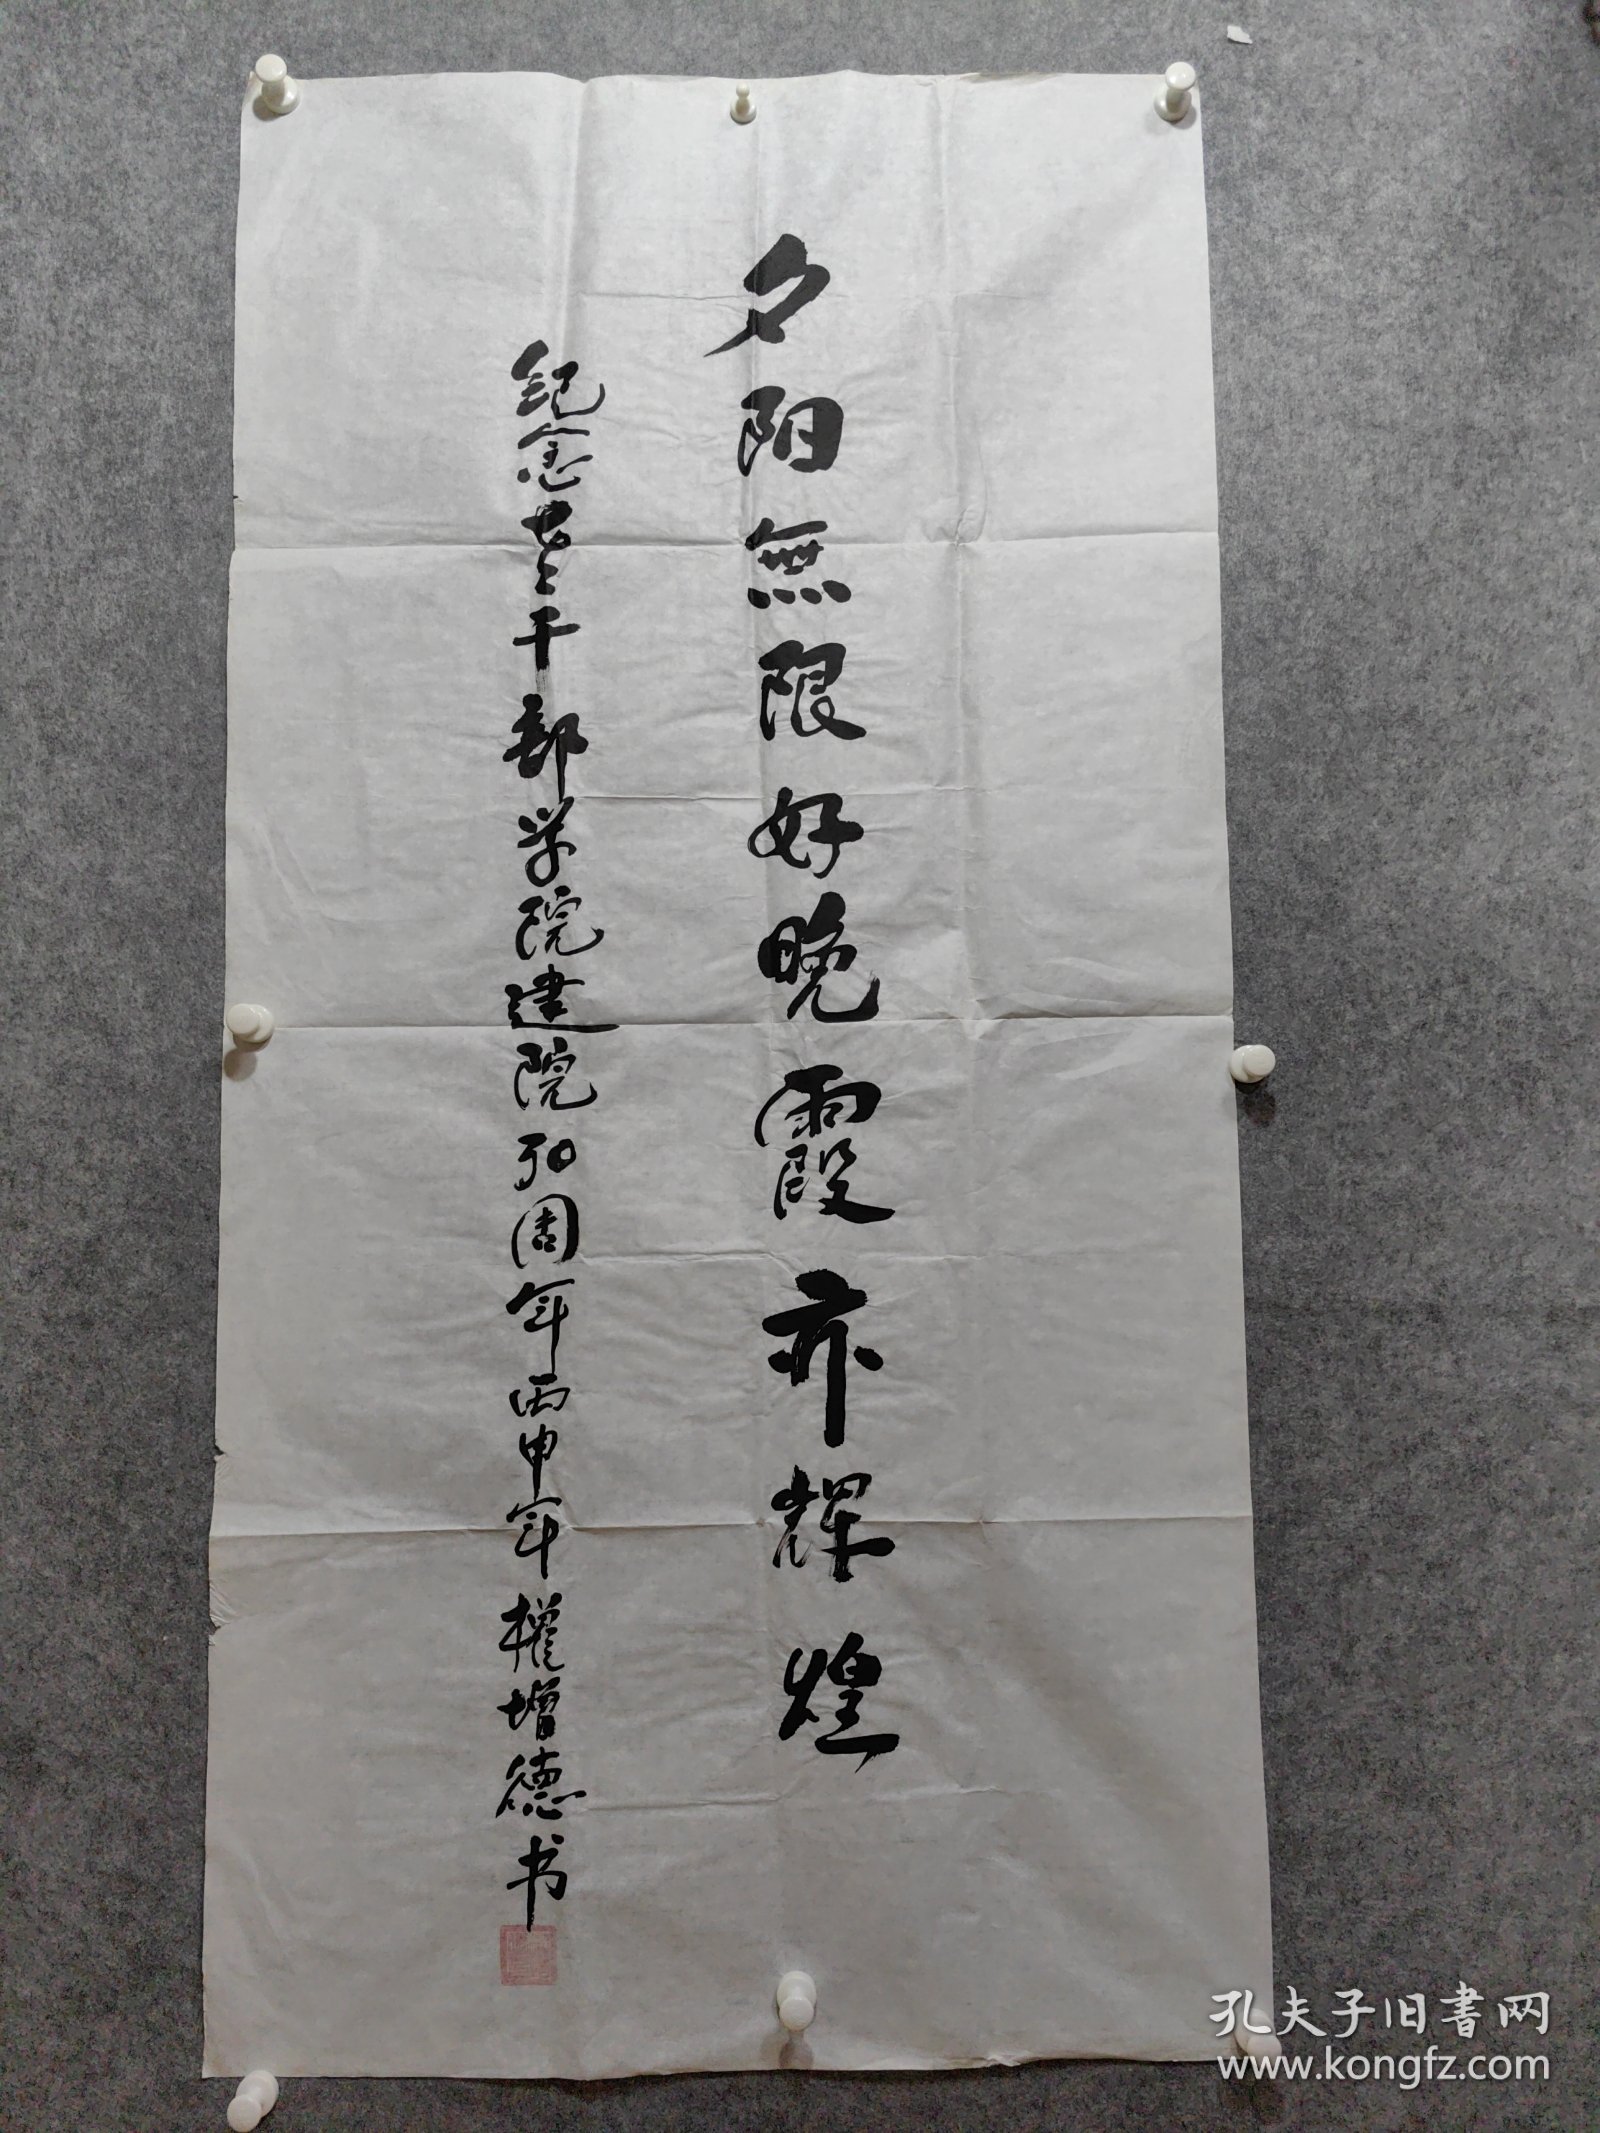 夕阳無限好晚霞亦輝煌
纪念老干部学院建院30周年丙申年權增德书
孔夫子旧書网
www.kongfz.com